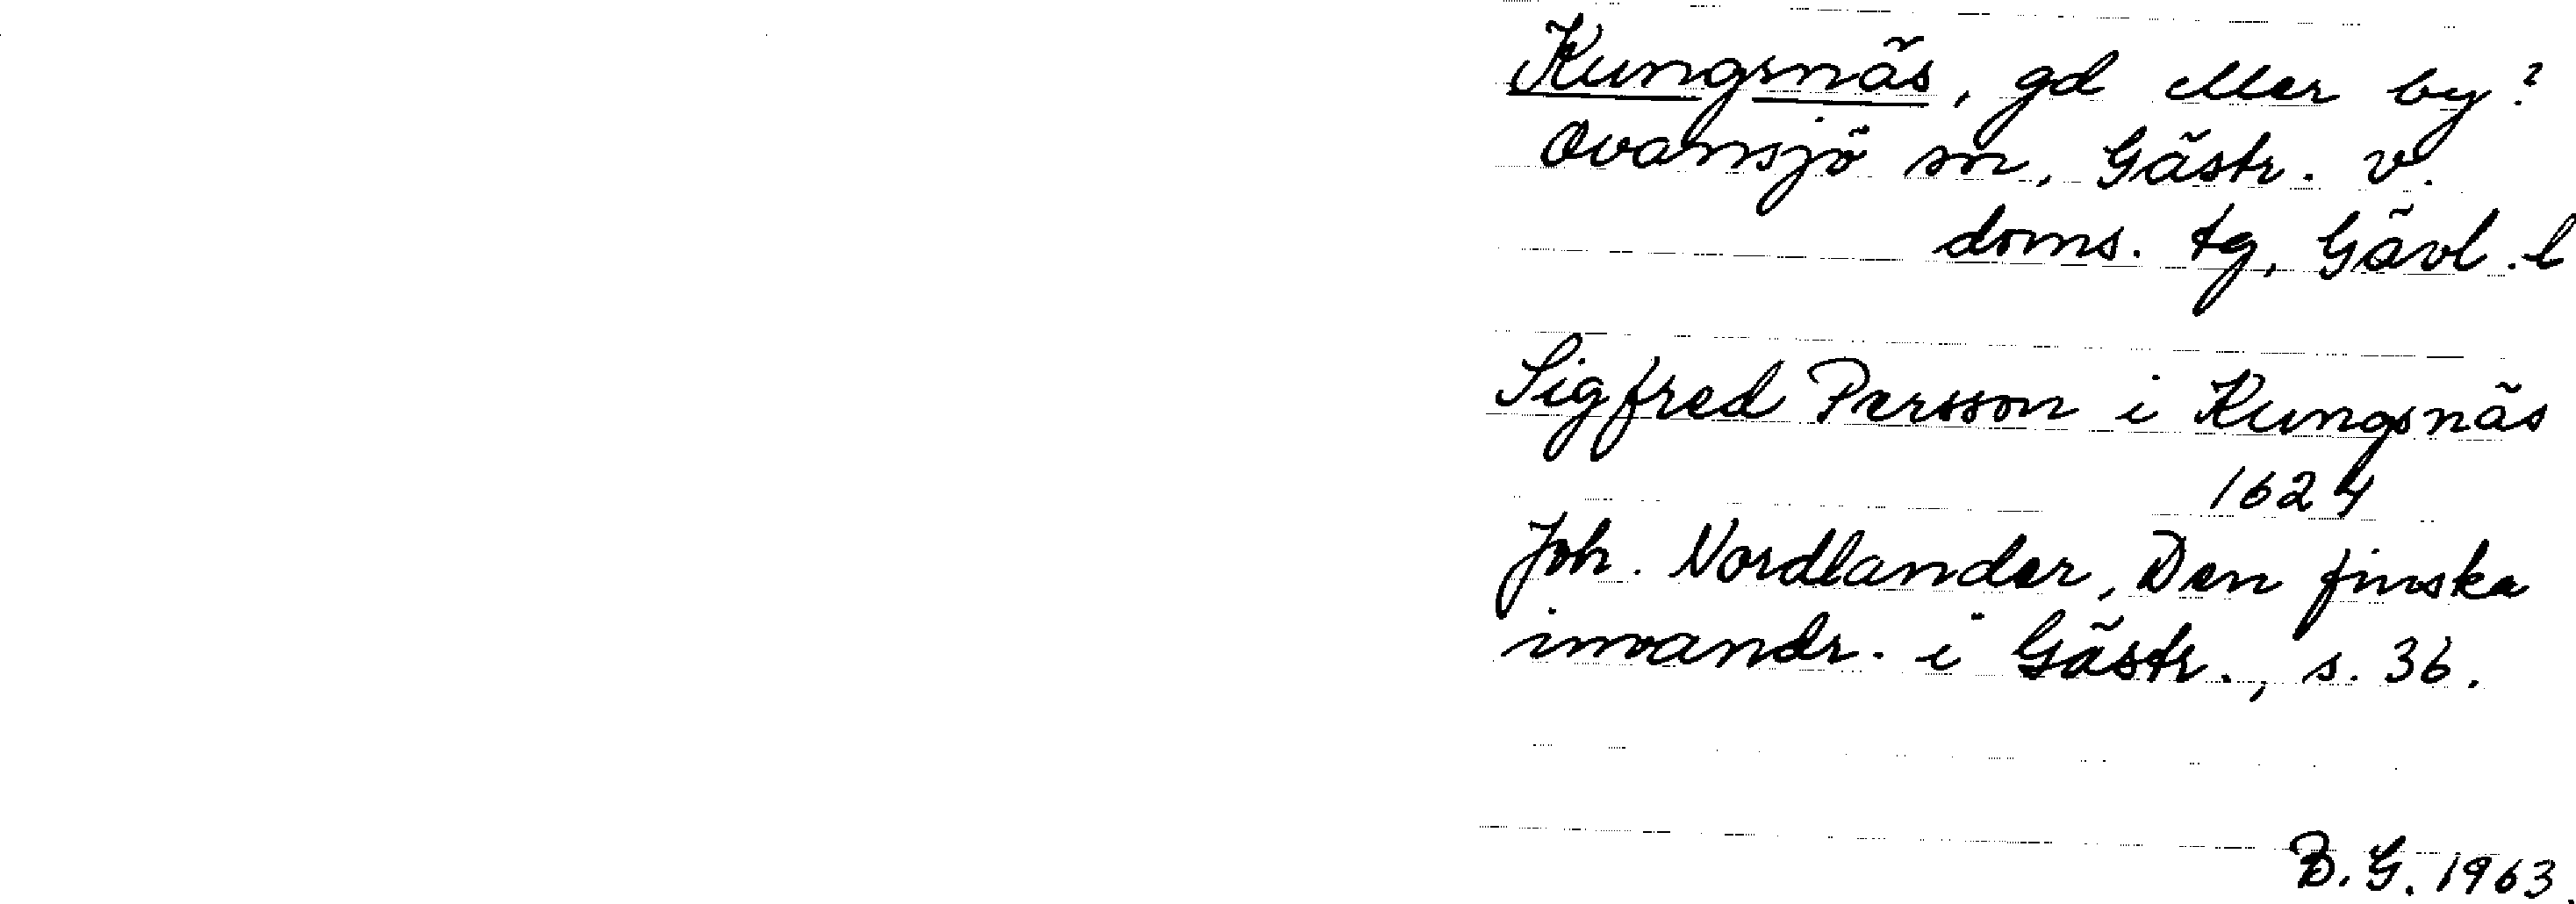 Kungsnäs, gd eller by?
Ovansjö sn, Gästr. v.
doms. tg, Gävl. l
Sigfred Persson i Kungsnäs
1624
Joh. Nordlander, Den finska
invandr. i Gästr., s. 36.
B.G. 1963.